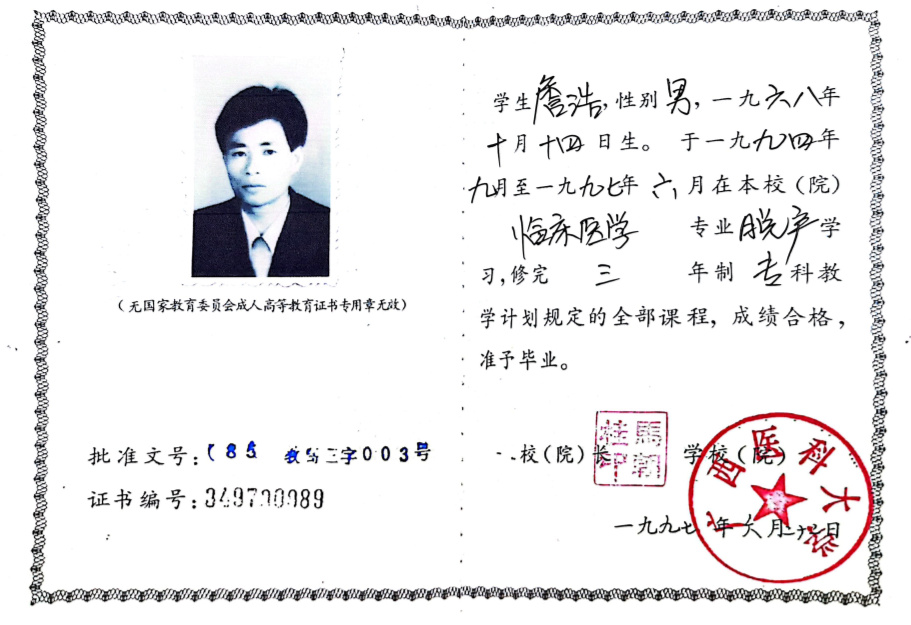 (无国家教育委员会成人高等教育证书专用章无效)
批准文号:(85 教 字003号
证书编号:349700089
学生詹浩,性别男,一九六八年
十月十四日生。于一九九四年
九月至一九九七年六月在本校(院)
临床医学 专业脱产学
习,修完 三 年制专科教
学计划规定的全部课程,成绩合格,
准予毕业。
校(院)长 学校(院)
马朝桂印
广西医科大学
一九九七年六月 日